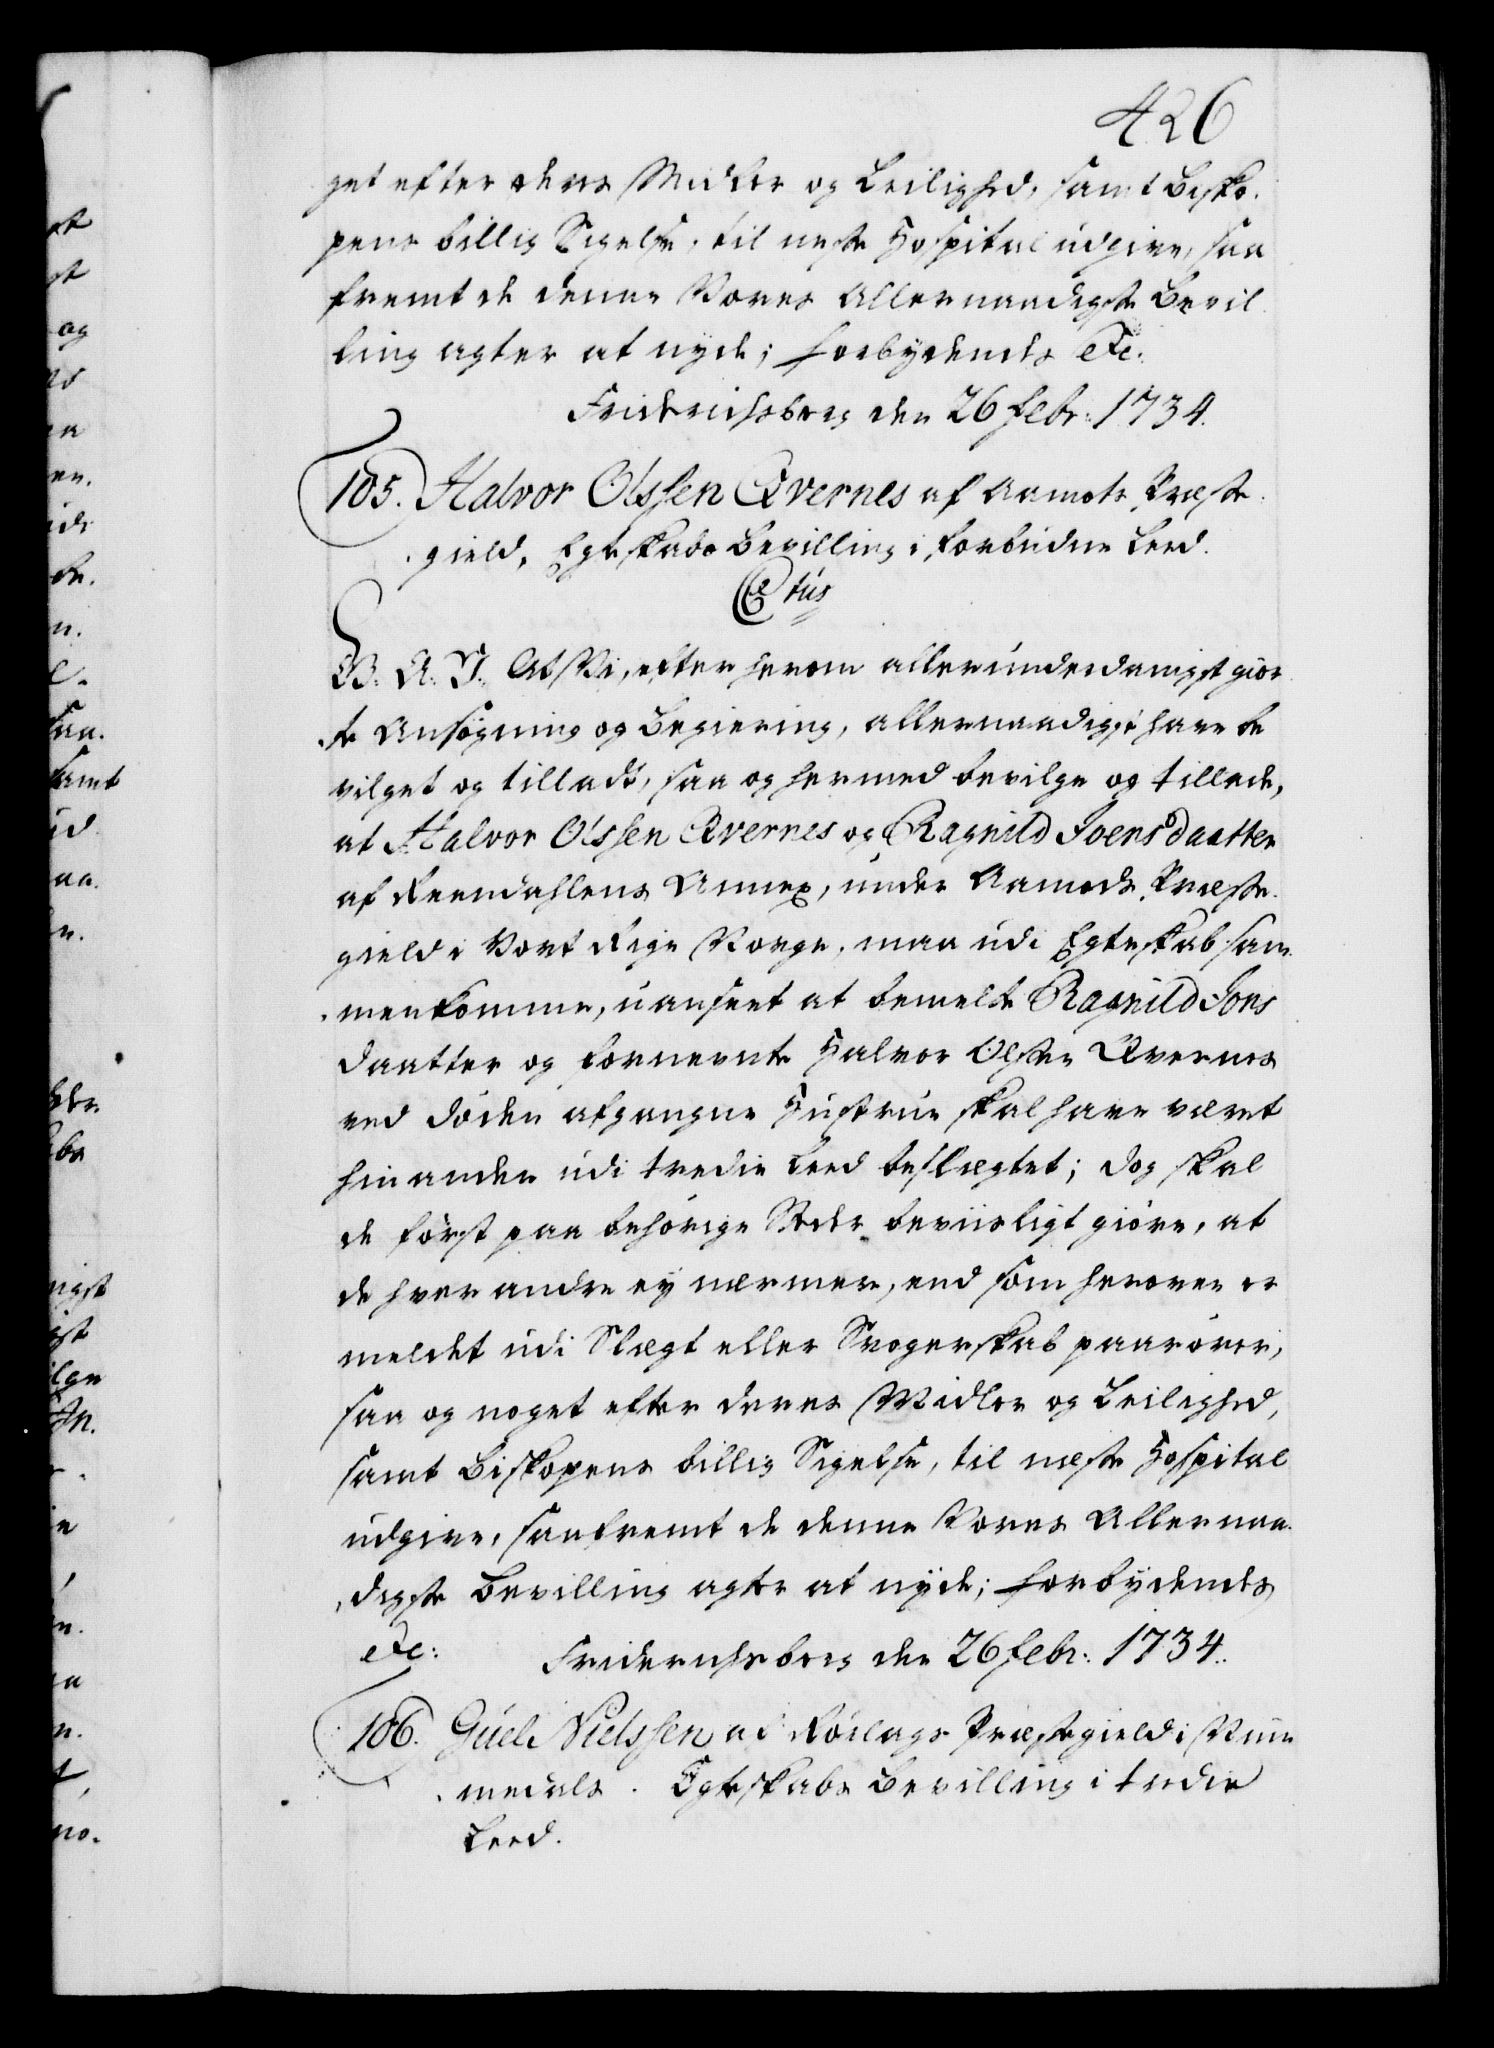 426
get efter deres Midler og Leilighed, samt Bisko¬
pens billig Sigelse, til neste Hospital udgive, saa
fremt de denne Vores Allernaadigste Bevil
ling agter at nyde; forbydendes etc:
Friderichsberg den 26 febr: 1734.
105. Halvor Olssen Qvernes af Aamots Præste
gield, Egteskabs Bevilling i forbudne Leed.
Ctus
G. A. V. At Vi, efter herom allerunderdanigst gior
te Ansøgning og Begiering, allernaadigst have be
vilget og tilladt, saa og hermed bevilge og tillade,
at Halvor Olssen Qvernes og Ragnild Joensdaatter
af Reendahlens Annex, under Aamods Præste
gield i Vort Rige Norge, maa udi Egteskab sam
menkomme, uanseet at bemelte Ragnild Jons
daatter og fornevnte Halvor Olssen Qvernes
ved døden afgangne Hustrue skal have været
hinanden udi tredie Leed beslægtet; dog skal
de først paa behörige Stæder beviisligt giöre, at
de hver andre ey nærmere, end som heroven er
meldet udi Slægt eller Svogerskab paarörer,
saa og noget efter deres Midler og Leilighed,
samt Biskopens billig Sigelse, til næste Hospital
udgive, saafremt de denne Vores Allernaa
digste Bevilling agter at nyde; forbydendes
etc: Friderichsberg den 26 febr: 1734.
106. Guel Nielssen af Præstegield i Num
medals. Egteskabs Bevilling i tredie
Leed.